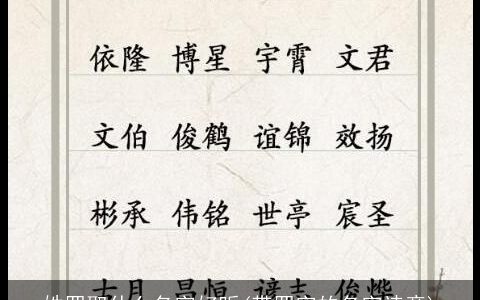 依隆 博星 宇霄 文君
文伯 俊鹤 谊锦 效扬
彬承 伟铭 世亭 宸圣
昌恒 俊烨
姓罗取什么名字好听(带罗字的名字诗意)